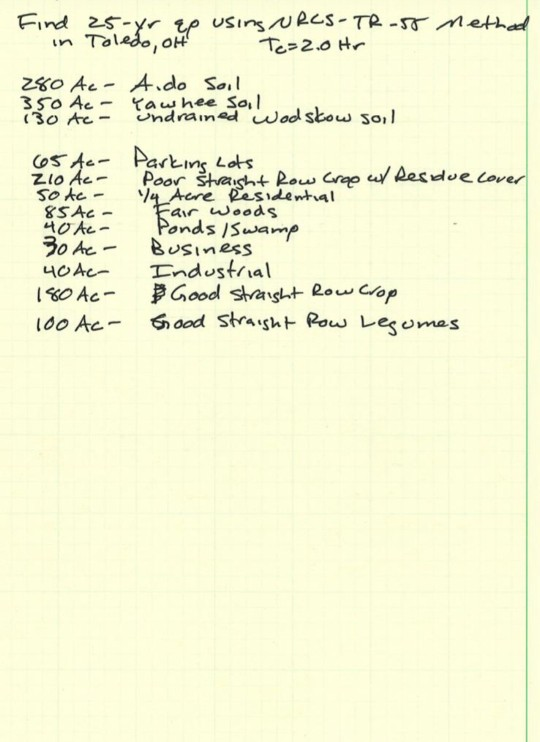 Find 25-yr qp using NRCS-TR-55 Method
in Toledo, OH Tc=2.0 Hr
280 Ac - Aido Soil
350 Ac - Yawhee Soil
130 Ac - undrained Woodskow soil
65 Ac - Parking Lots
210 Ac - Poor Straight Row Crop w/ Residue cover
50 Ac - 1/4 Acre Residential
85 Ac - Fair Woods
40 Ac - Ponds/Swamp
30 Ac - Business
40 Ac - Industrial
180 Ac - Good Straight Row Crop
100 Ac - Good Straight Row Legumes